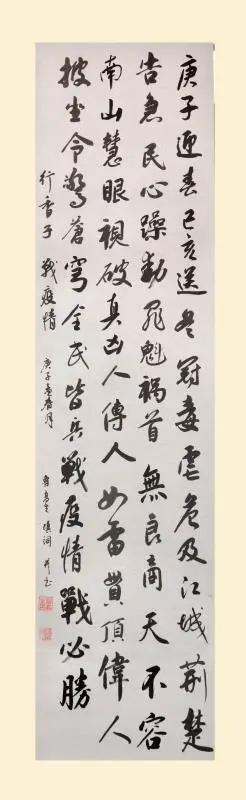 庚子迎春己亥送冬冠毒虐危及江城荆楚
告急民心躁动罪魁禍首無良商天不容
南山慧眼視破真凶人傳人如雷貫頂偉人
披坐令驚蒼穹全民皆兵戰疫情戰必勝
行香子 戰疫情 庚子 春月
填詞并书